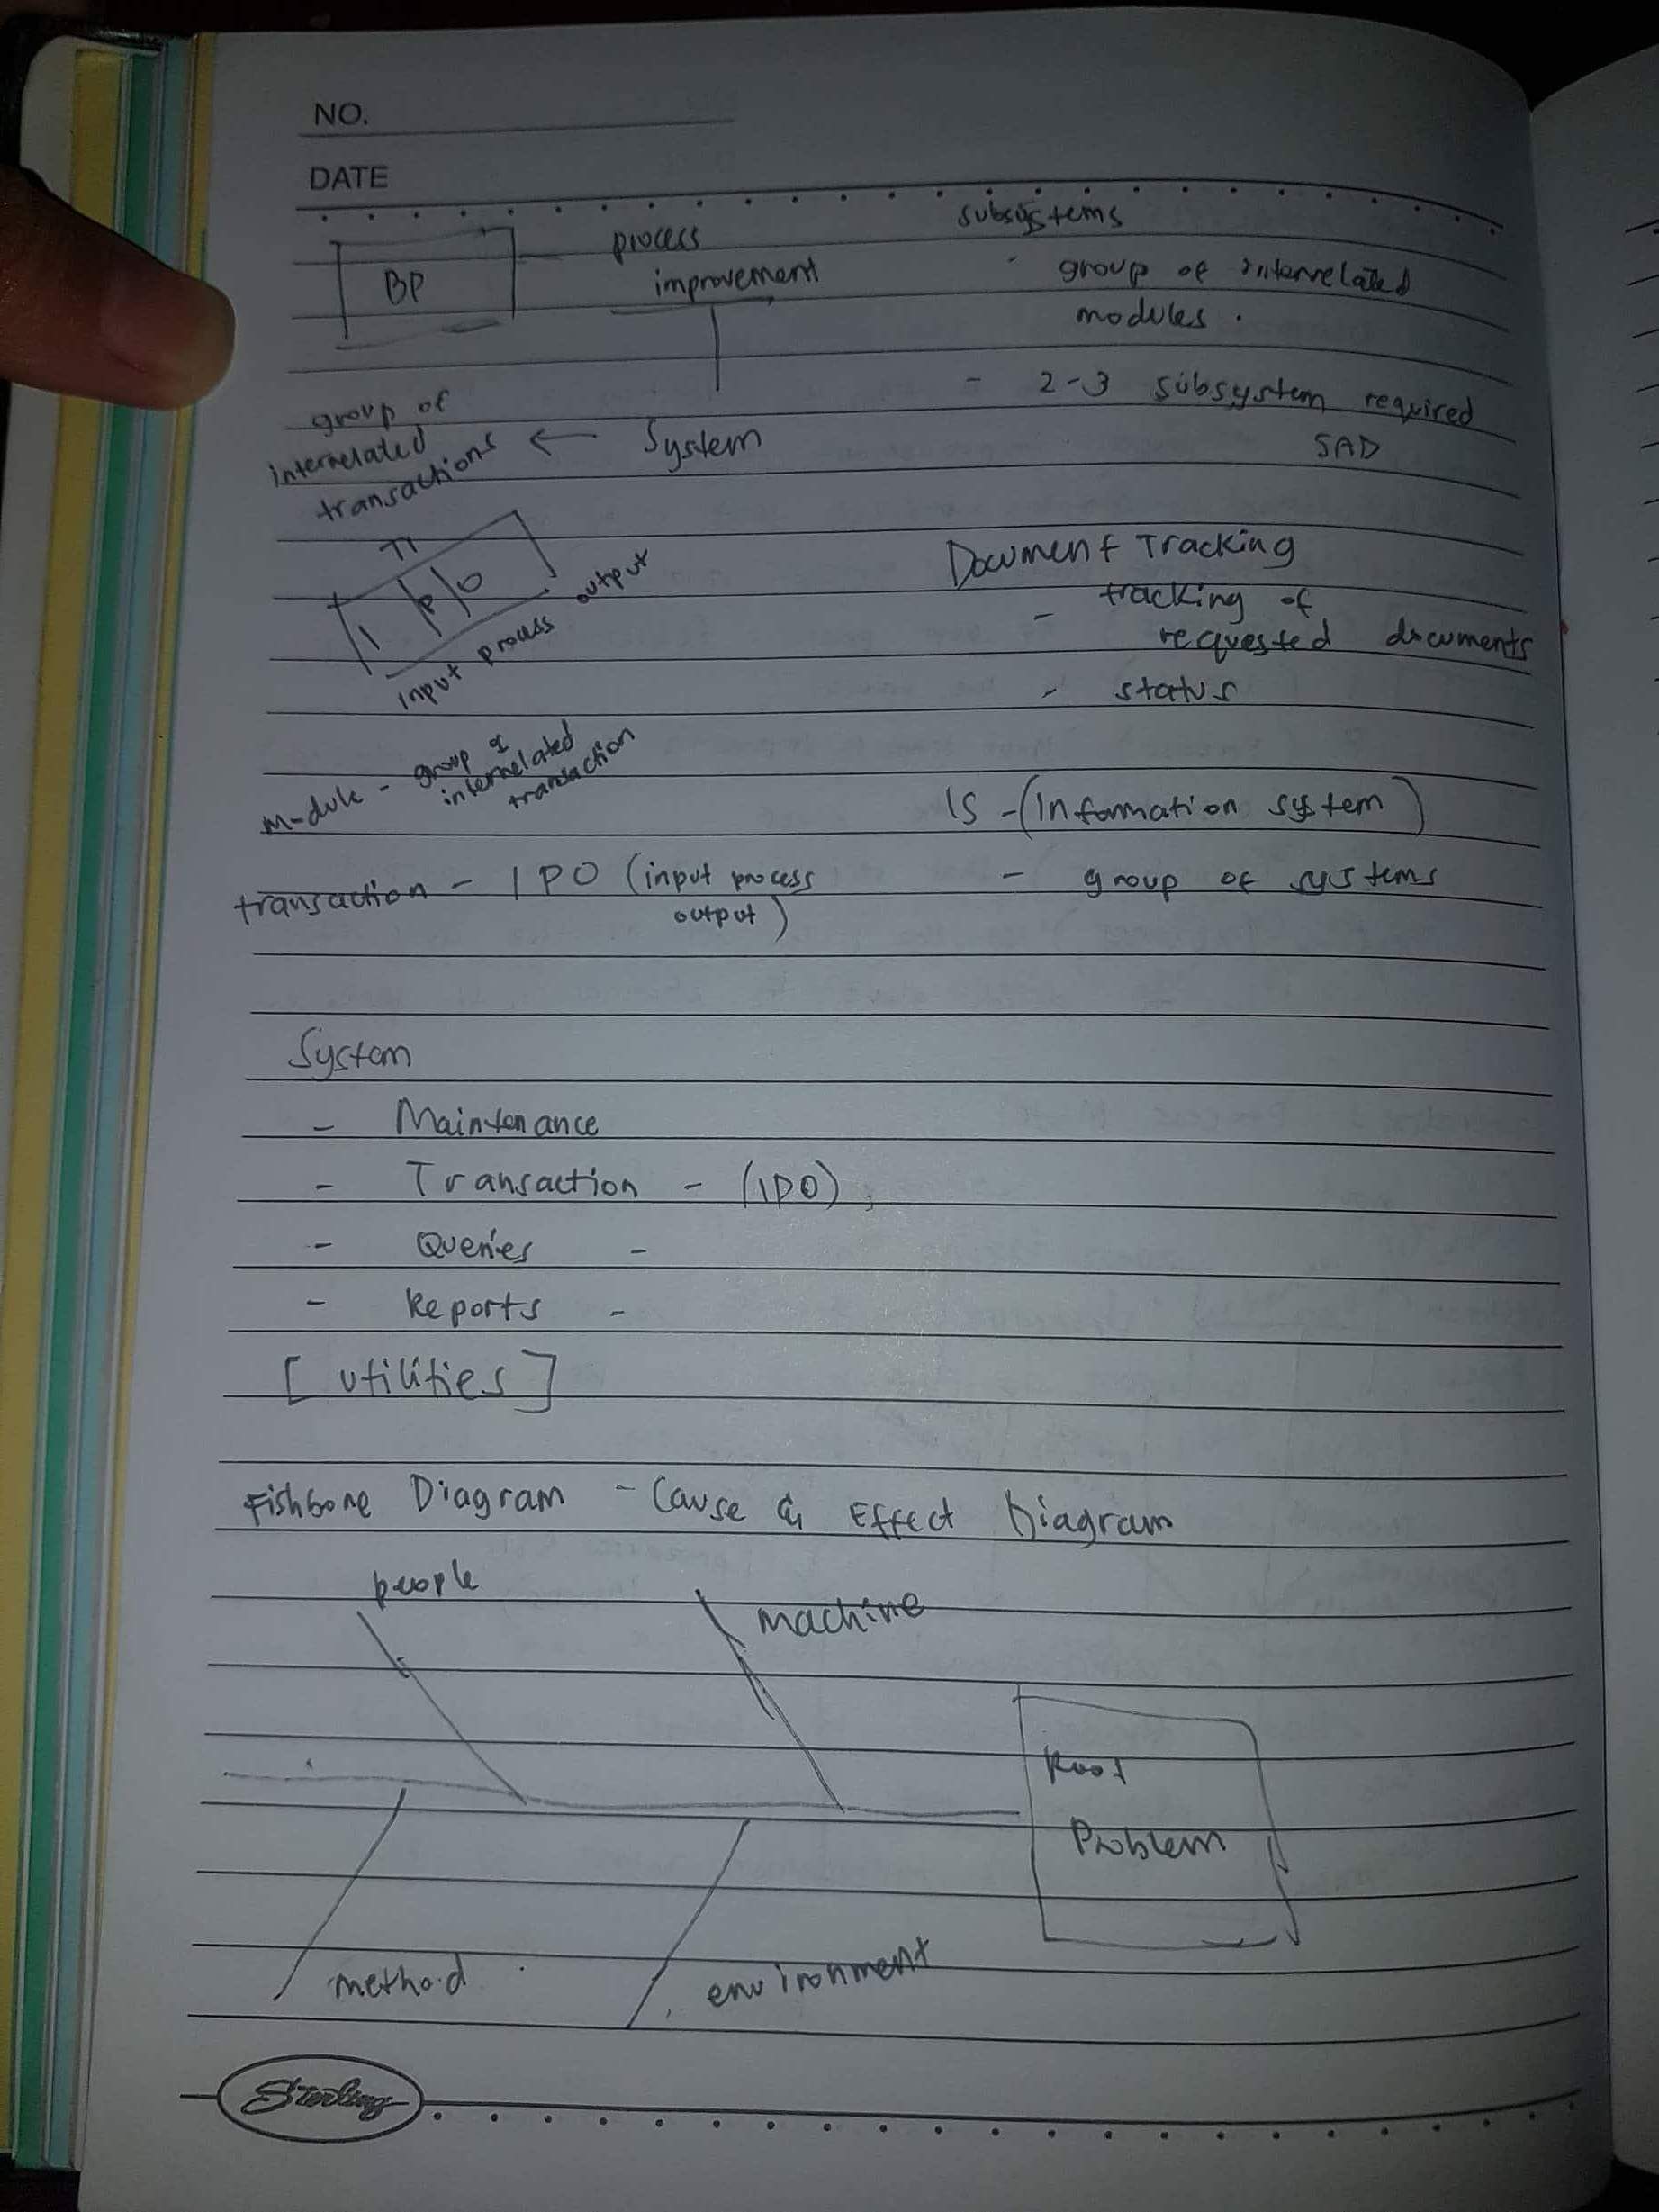 NO.
DATE
BP
process
improvement
group of
interrelated
transactions
← System
T1
I P O
input process output
module - group of
interrelated
transaction
transaction - IPO (input process
output)
subsystems
- group of interrelated
modules.
- 2-3 subsystem required
SAD
Document Tracking
- tracking of
requested documents
- status
IS - (Information system)
- group of systems
System
- Maintenance
- Transaction - (IPO)
- Queries -
- Reports -
[utilities]
Fishbone Diagram - Cause & Effect Diagram
people
machine
Root
Problem
method
environment
Sterling